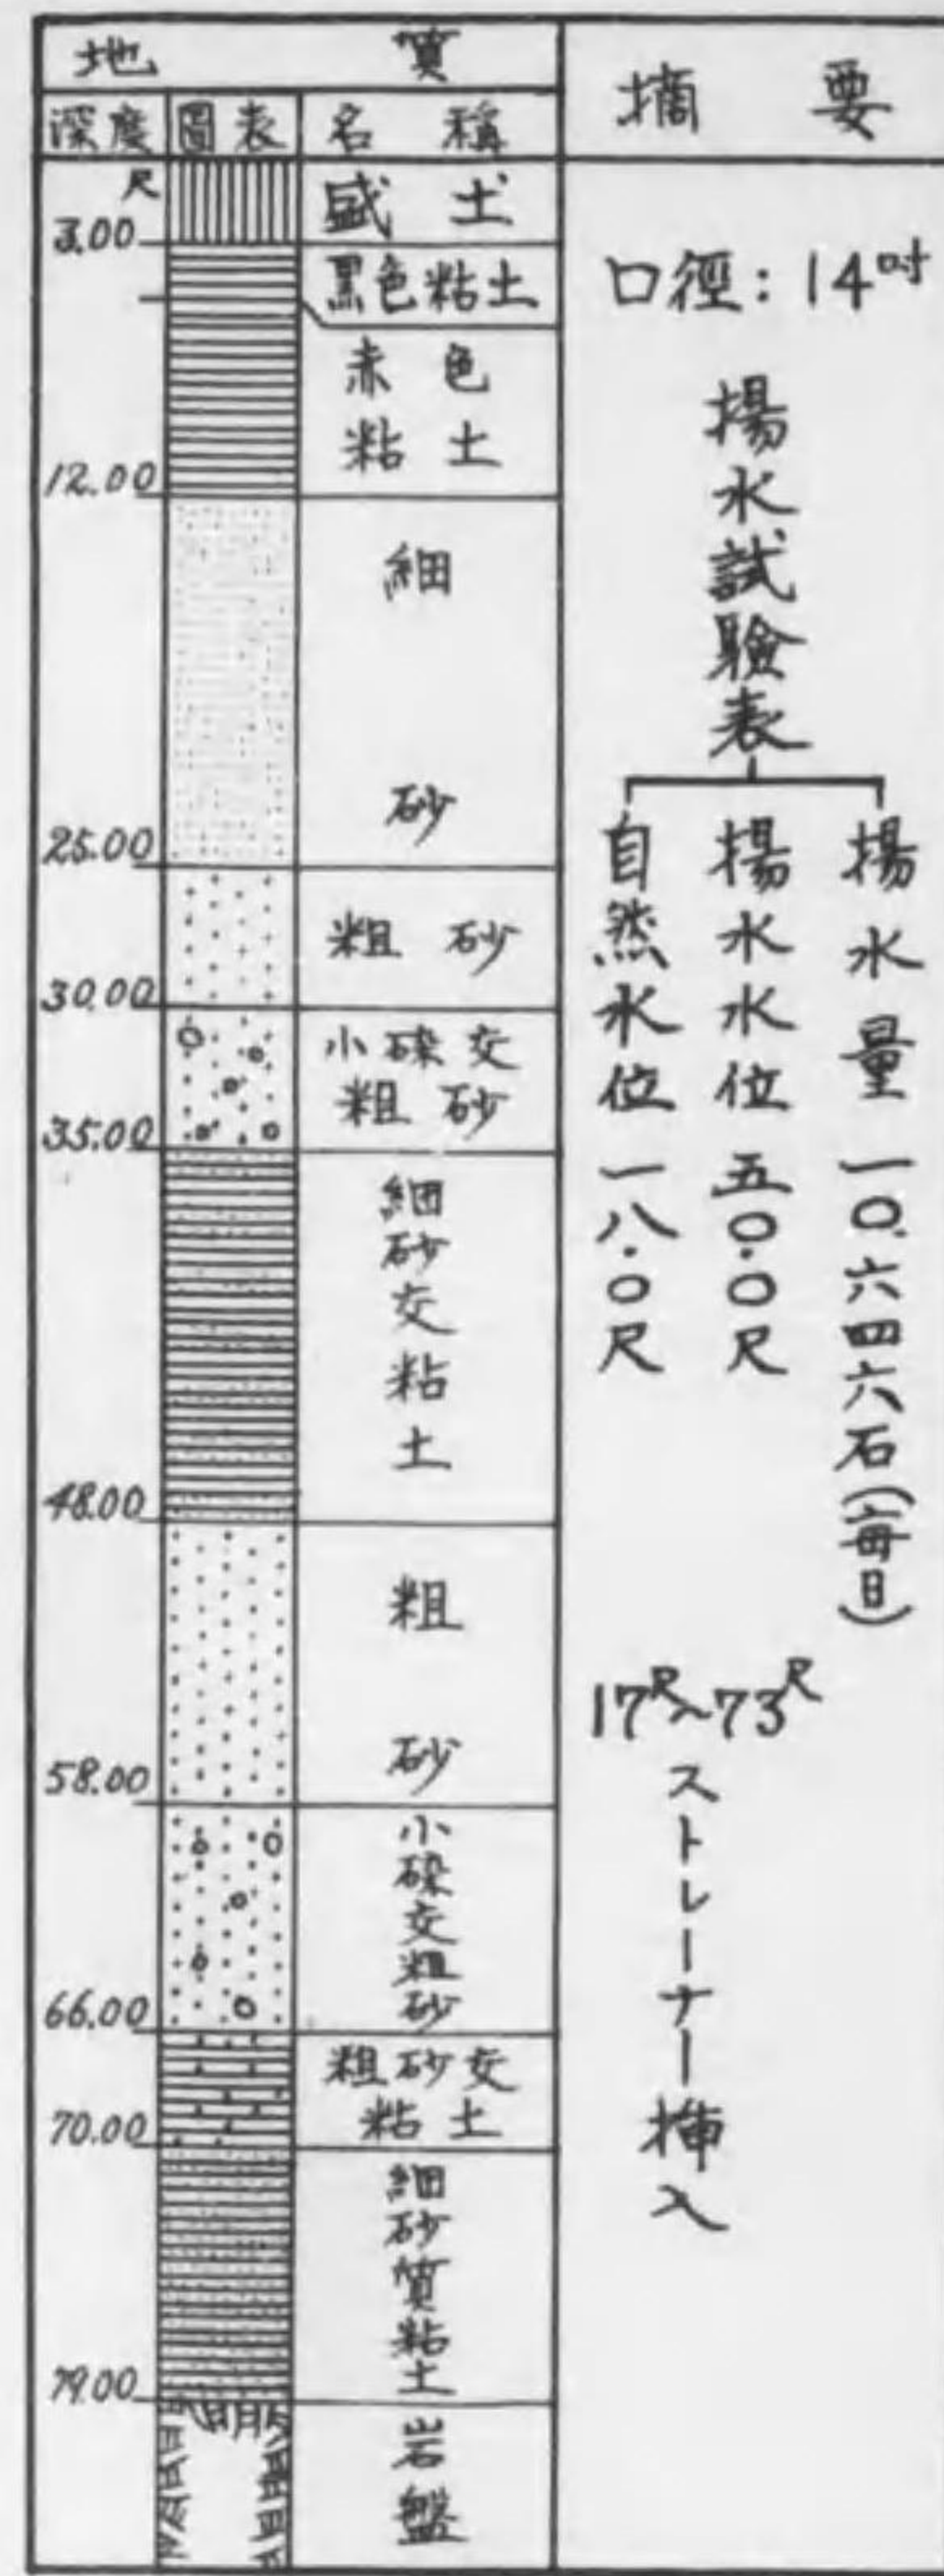 地質
深度 圖表 名稱
摘要
尺
3.00
盛土
黒色粘土
赤色
粘土
12.00
細砂
25.00
粗砂
30.00
小礫交
粗砂
35.00
細砂交粘土
48.00
粗砂
58.00
小礫交粗砂
66.00
粗砂交
粘土
70.00
細砂質粘土
79.00
岩盤
口徑:14吋
揚水試驗表
揚水量一〇.六四六石(毎日)
揚水水位五〇.〇尺
自然水位一八.〇尺
17尺~73尺
ストレーナー挿入